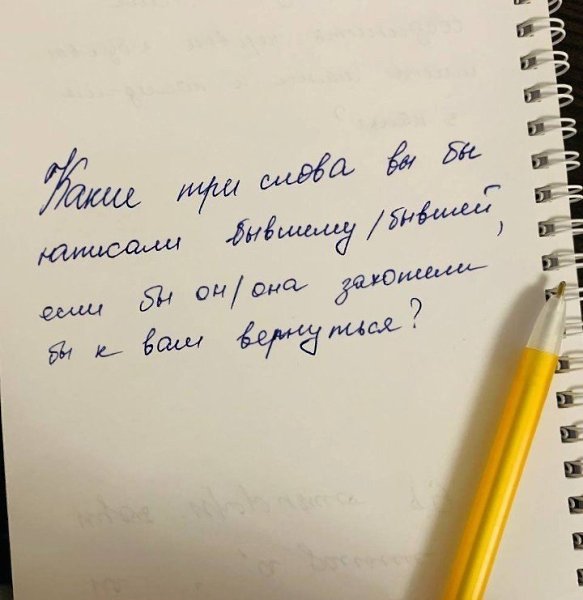 Какие три слова вы бы
написали бывшему/бывшей,
если бы он/она захотели
бы к вам вернуться?